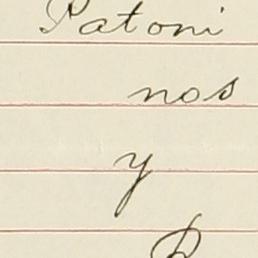 Patoni
nos
y
P